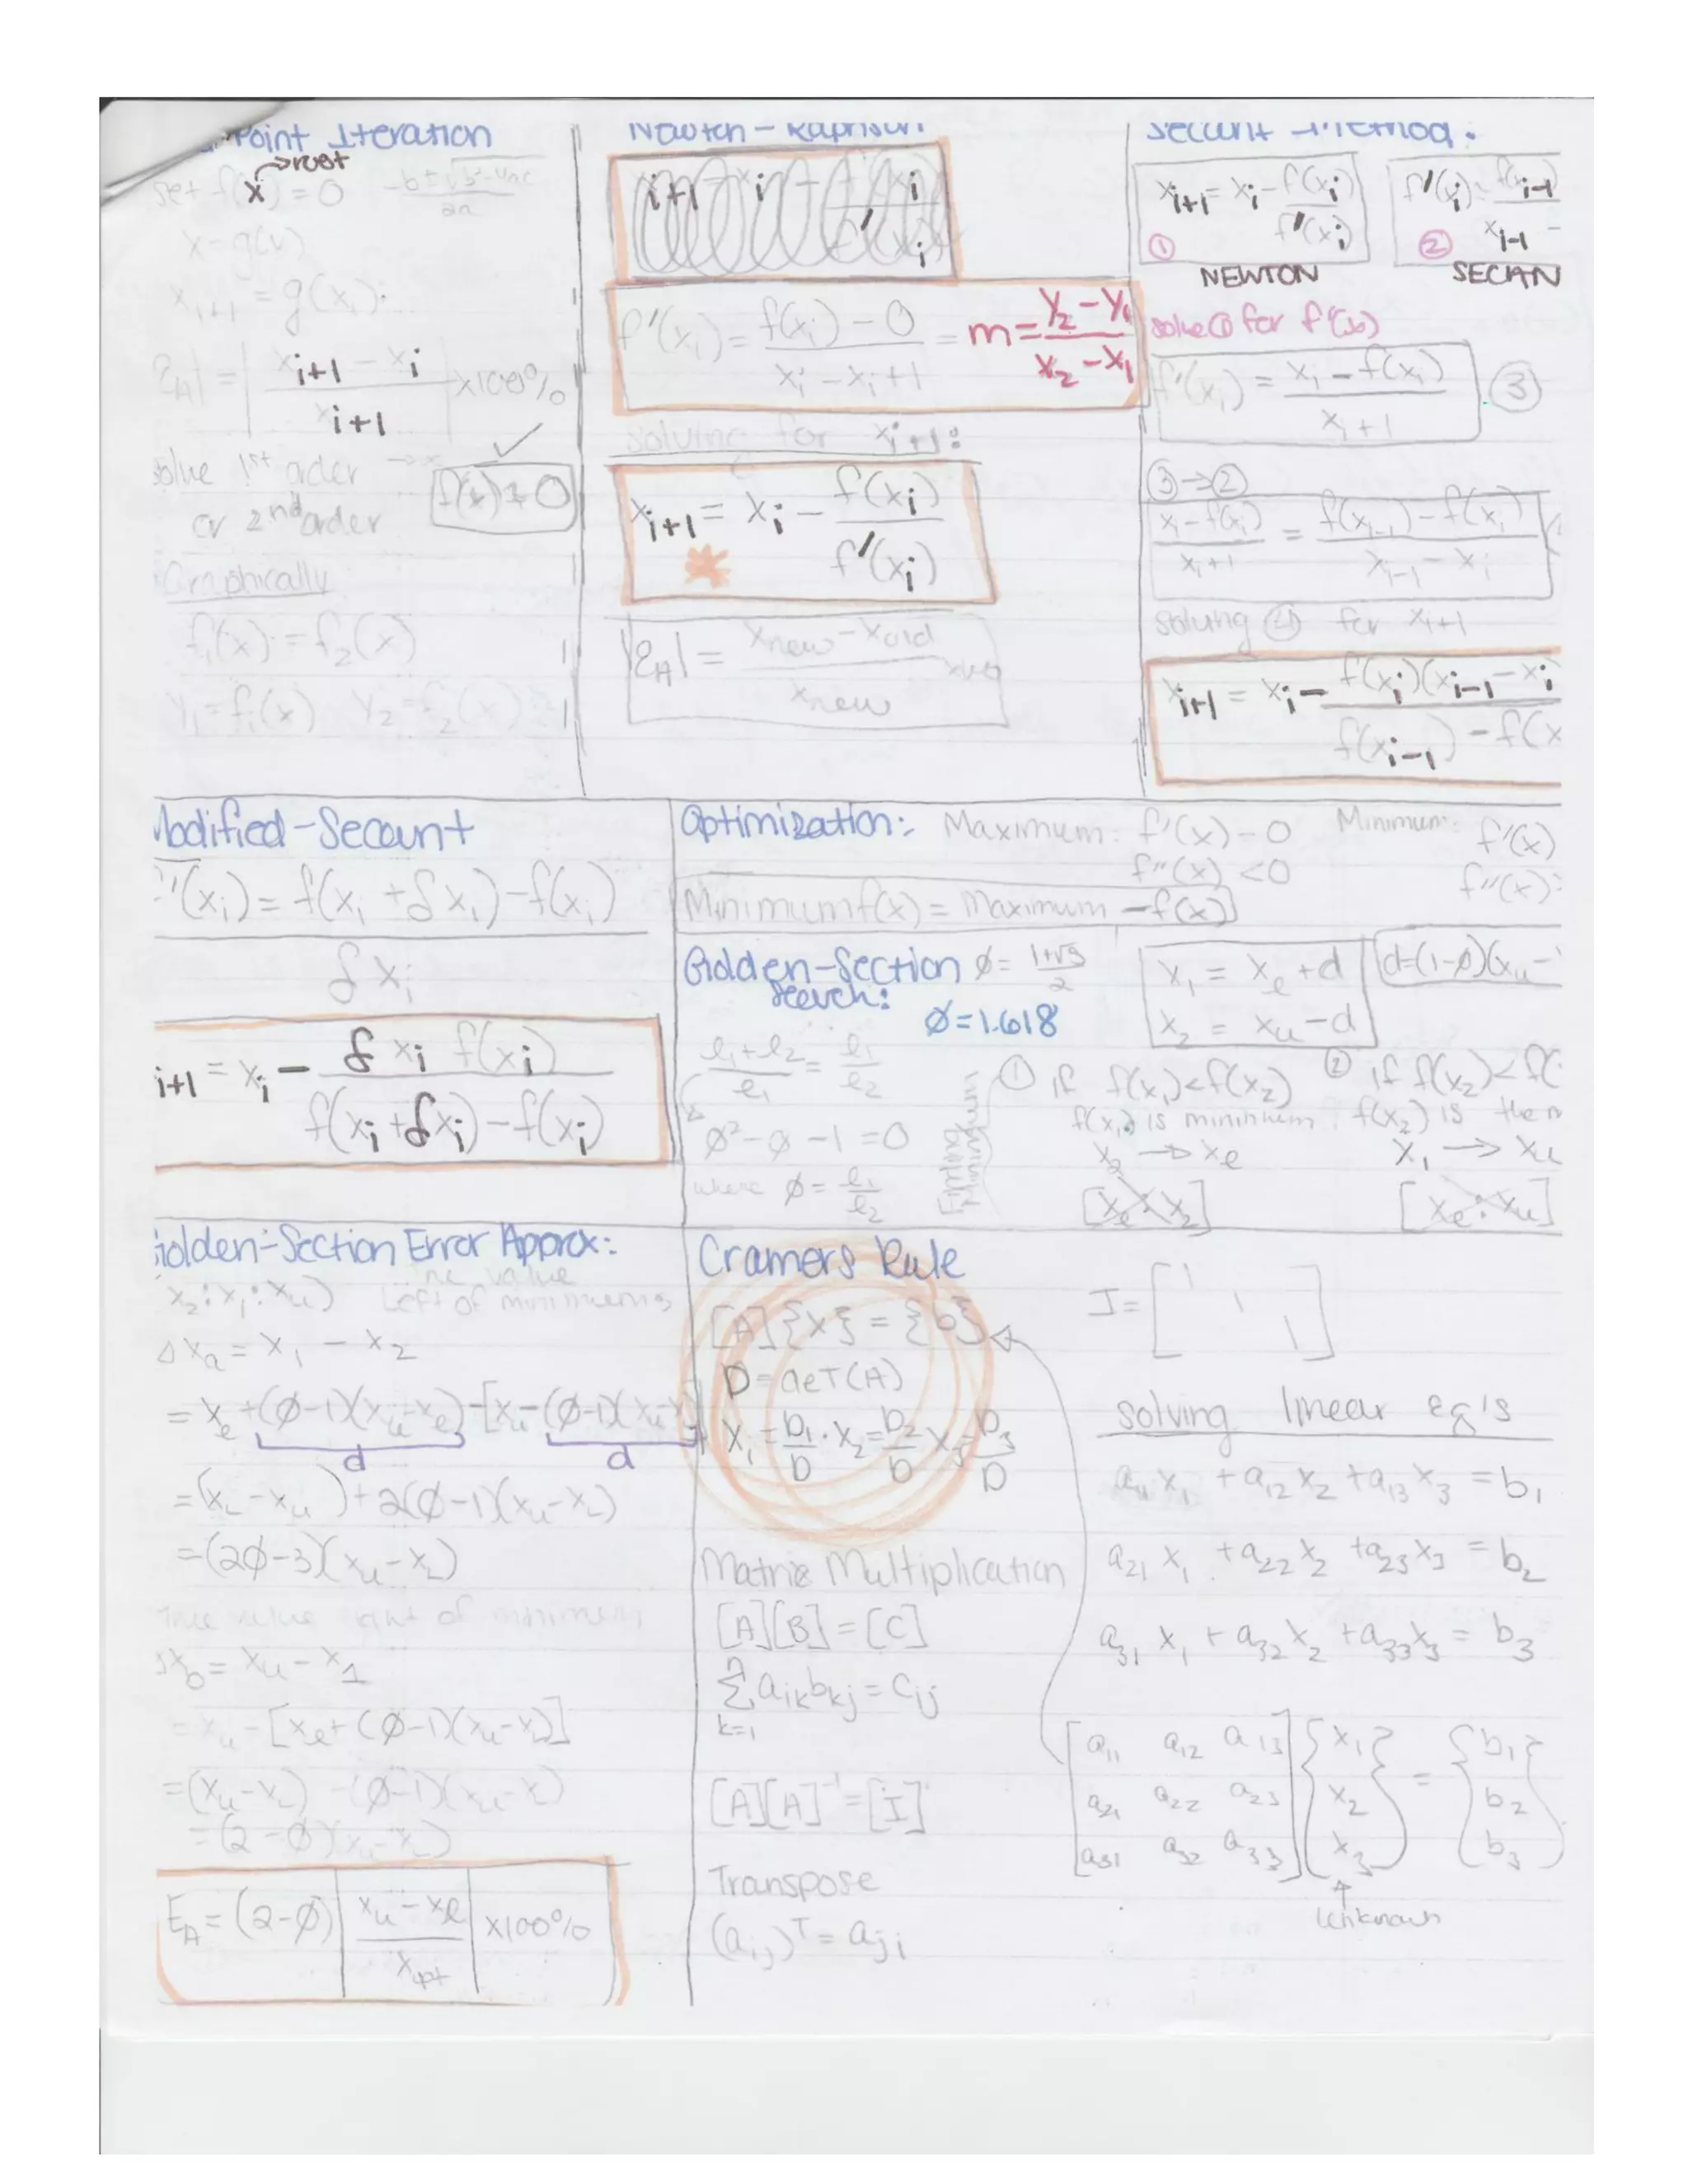 Point Iteration
→root
set f(x) = 0 -b±√b²-4ac / 2a
x = g(x)
x_{i+1} = g(x_i):
|ε_A| = | (x_{i+1} - x_i) / x_{i+1} | x100%
solve 1st order
or 2nd order
f(x) = 0
Graphically
f₁(x) = f₂(x)
y₁ = f₁(x) y₂ = f₂(x)
Newton-Raphson
f'(x_i) = (f(x_i) - 0) / (x_i - x_i+1) = m = (y₂ - y₁) / (x₂ - x₁)
solving for x_{i+1}:
x_{i+1} = x_i - f(x_i) / f'(x_i)
|ε_A| = (x_new - x_old) / x_new x100
Secant Method:
x_{i+1} = x_i - f(x_i) / f'(x_i)
①
NEWTON
f'(x_i) = f(x_{i-1} / x_{i-1} -
②
SECAN
solve ① for f'(x)
f'(x_i) = (x_i - f(x_i)) / x_i+1 ③
③→②
(x_i - f(x_i)) / x_i+1 = (f(x_{i-1}) - f(x_i)) / (x_{i-1} - x_i)
solving ④ for x_{i+1}
x_{i+1} = x_i - f(x_i)(x_{i-1} - x_i / f(x_{i-1}) - f(x
Modified-Secant
f'(x_i) = f(x_i + δx_i) - f(x_i)
δx_i
i+1 = x_i - δx_i f(x_i) / (f(x_i + δx_i) - f(x_i))
Optimization: Maximum: f'(x) - 0 Minimum: f'(x)
f''(x) < 0 f''(x)
Minimum f(x) = Maximum -f(x)
Golden-Section
Search:
ø = (1+√5) / 2
ø = 1.618
x₁ = x_e + d
x₂ = x_u - d
d=(1-ø)(x_u -
(l₁ + l₂) / l₁ = l₁ / l₂
ø² - ø - 1 = 0
where ø = l₁ / l₂
Minimum
① if f(x₁) < f(x₂)
f(x₁) is minimum
x₂ → x_e
[x_e : x₂]
② if f(x₂) < f(
f(x₂) is the m
x₁ → x_u
[x_e : x_u]
Golden-Section Error Approx:
x₂ : x₁ : x_u) true value
Left of minimum
Δx_a = x₁ - x₂
= x_e + (ø-1)(x_u - x_e) - [x_u - (ø-1)(x_u - x
d d
= (x_L - x_u) + 2(ø-1)(x_u - x_L)
= (2ø-3)(x_u - x_L)
True value right of minimum
Δx_b = x_u - x_1
= x_u - [x_e + (ø-1)(x_u - x_L)]
= (x_u - x_L) - (ø-1)(x_u - x_L)
= (2-ø)(x_u - x_L)
E_A = (2-ø) | (x_u - x_l) / x_opt | x100%
Cramers Rule
[A]{x} = {b}
D = deT(A)
x₁ = b₁/D · x₂ = b₂/D x₃ = b₃/D
Matrix Multiplication
[A][B] = [C]
n
Σ a_{ik} b_{kj} = c_{ij}
k=1
[A][A]⁻¹ = [I]
Transpose
(a_{ij})^T = a_{ji}
I = [1 1 1]
solving linear eq's
a₁₁x₁ + a₁₂x₂ + a₁₃x₃ = b₁
a₂₁x₁ + a₂₂x₂ + a₂₃x₃ = b₂
a₃₁x₁ + a₃₂x₂ + a₃₃x₃ = b₃
a₁₁ a₁₂ a₁₃ x₁ b₁
a₂₁ a₂₂ a₂₃ x₂ = b₂
a₃₁ a₃₂ a₃₃ x₃ b₃
Unknown